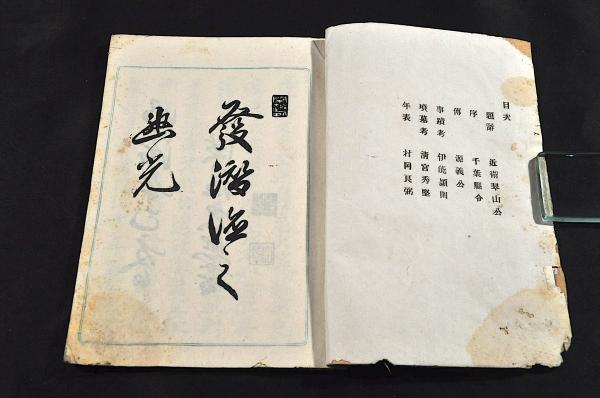 目次
題辭 近衞翠山公
序 千葉縣令
傳 源義公
事蹟考 伊能穎則
墳墓考 清宮秀堅
年表 村岡良弼
發潛德之
幽光